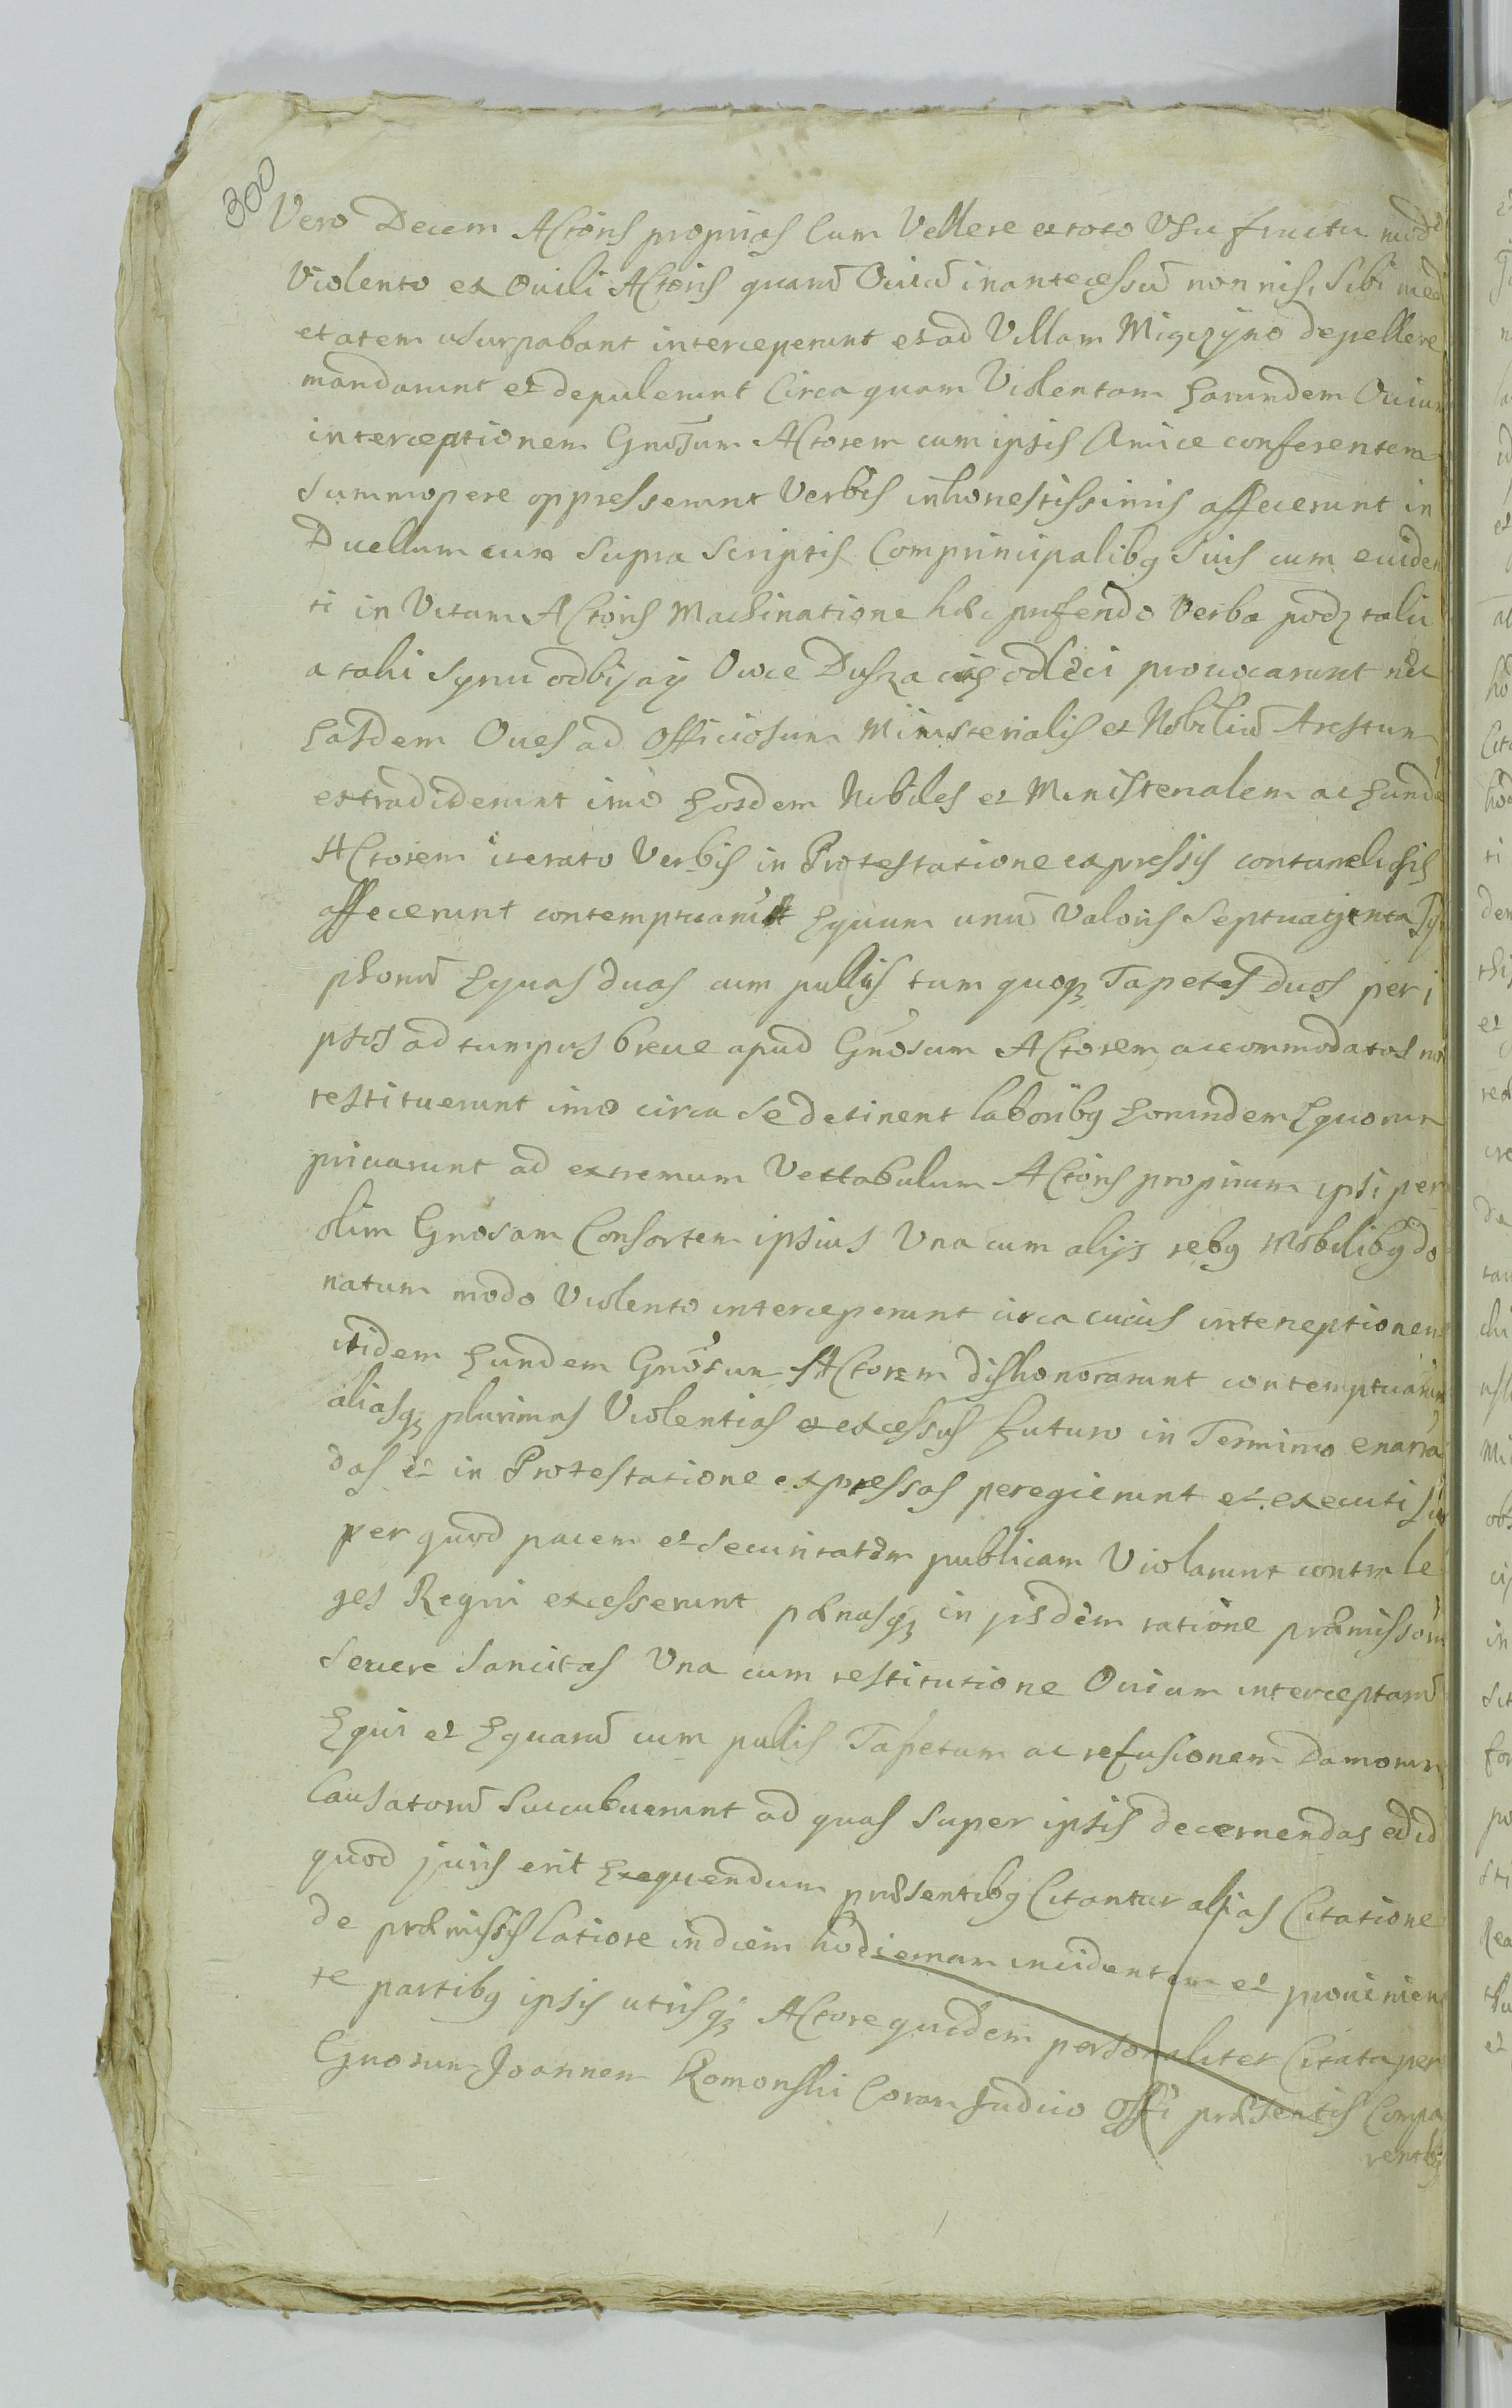 300
Vero Decem Actoris proprias Cum Vellere ex toto Usu fructu modo
Violento ex Ovili Actoris quarū Oviū in antecessū non nisi Sibi medi
etatem usurpabant interceperunt et ad Villam Miączyno depellere
mandarunt et depulerunt Circa quam Violentam harundem Ovium
interceptionem Gnosum Actorem cum ipsis Amice conferentem
Summopere oppresserunt Verbis inhonestissimis affecerunt in
Duellum cum Supra Scriptis Comprincipalibq Suis cum eviden
ti in Vitam Actoris Machinatione hæc pnferendo Verba podz taki
a taki Synu odbijay Owce Dusza cię odleci provocarunt nec
hasdem Oves ad officiosum Ministerialis et Nobiliū Arestum
extradiderunt imo hosdem Nobiles et Ministerialem ac hunde
Actorem iterato Verbis in Protestatione expressis contumeliosis
affecerunt contemptuarunt Equum unū Valoris Septuaginta Ty
phorū Equas duas cum pullis tum quoqz Tapetes Duos per i
psos ad tempus breve apud Gnosum Actorem accommodatos no
restituerunt imo circa Se detinent laboribq horundem Equorum
privarunt ad extremum Vestabulum Actoris proprium ipsi per
olim Gnosam Consortem ipsius Una cum alijs rebq Mobilibq do
natum modo Violento interceperunt circa cuius interceptionem
itidem hundem Gnosum Actorem dishonorarunt contemptuarunt
aliasqz plurimas Violentias et excessus futuro in Termino enarran
das et in Protestatione expressas peregerunt et executi sūt
per quod pacem et Securitatem publicam Violarunt contra le
ges Regni excesserunt pænasqz in jisdem ratione præmissorū
Severe Sancitas Una cum restitutione Ovium interceptarū
Equi et Equarū cum pulis Tapetum ac refusionem Damnorum
Causatorū Succubuerunt ad quas Super ipsis decernendas et id
quod juris erit Exequendum præsentibq Citantur alias Citatione
de præmissis latiore in diem hodiernam incidentem et provenien
te partibq ipsis utrisqz Actore quidem personaliter Citata per
Gnosum Joannem Komonski Coram Judicio Offi præsentis Compa
rentibq